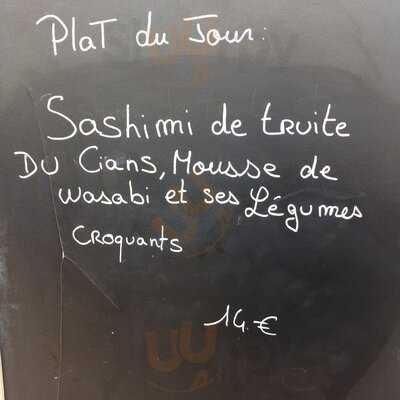 Plat du Jour:
Sashimi de truite
DU Cians, Mousse de
wasabi et ses Légumes
CROQUANTS
14.€